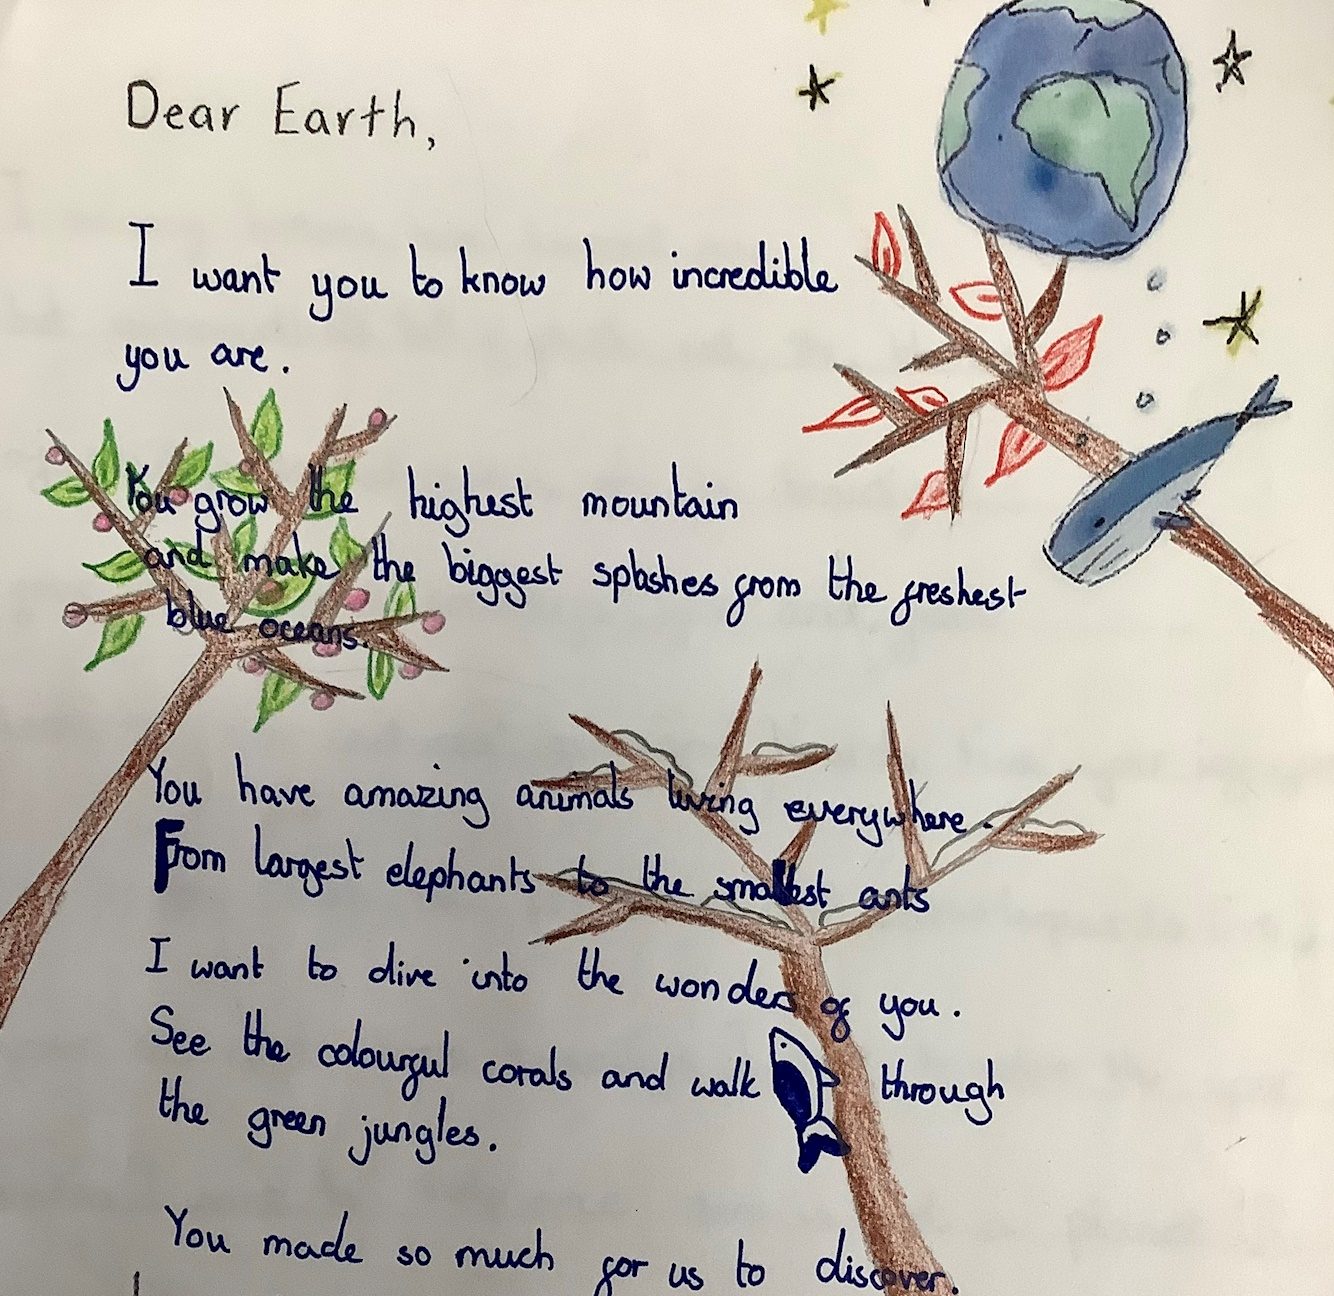 Dear Earth,
I want you to know how incredible
you are.
You grow the highest mountain
and make the biggest splashes from the freshest
blue oceans.
You have amazing animals living everywhere.
From largest elephants to the smallest ants
I want to dive into the wonders of you.
See the colourful corals and walk through
the green jungles.
You made so much for us to discover.